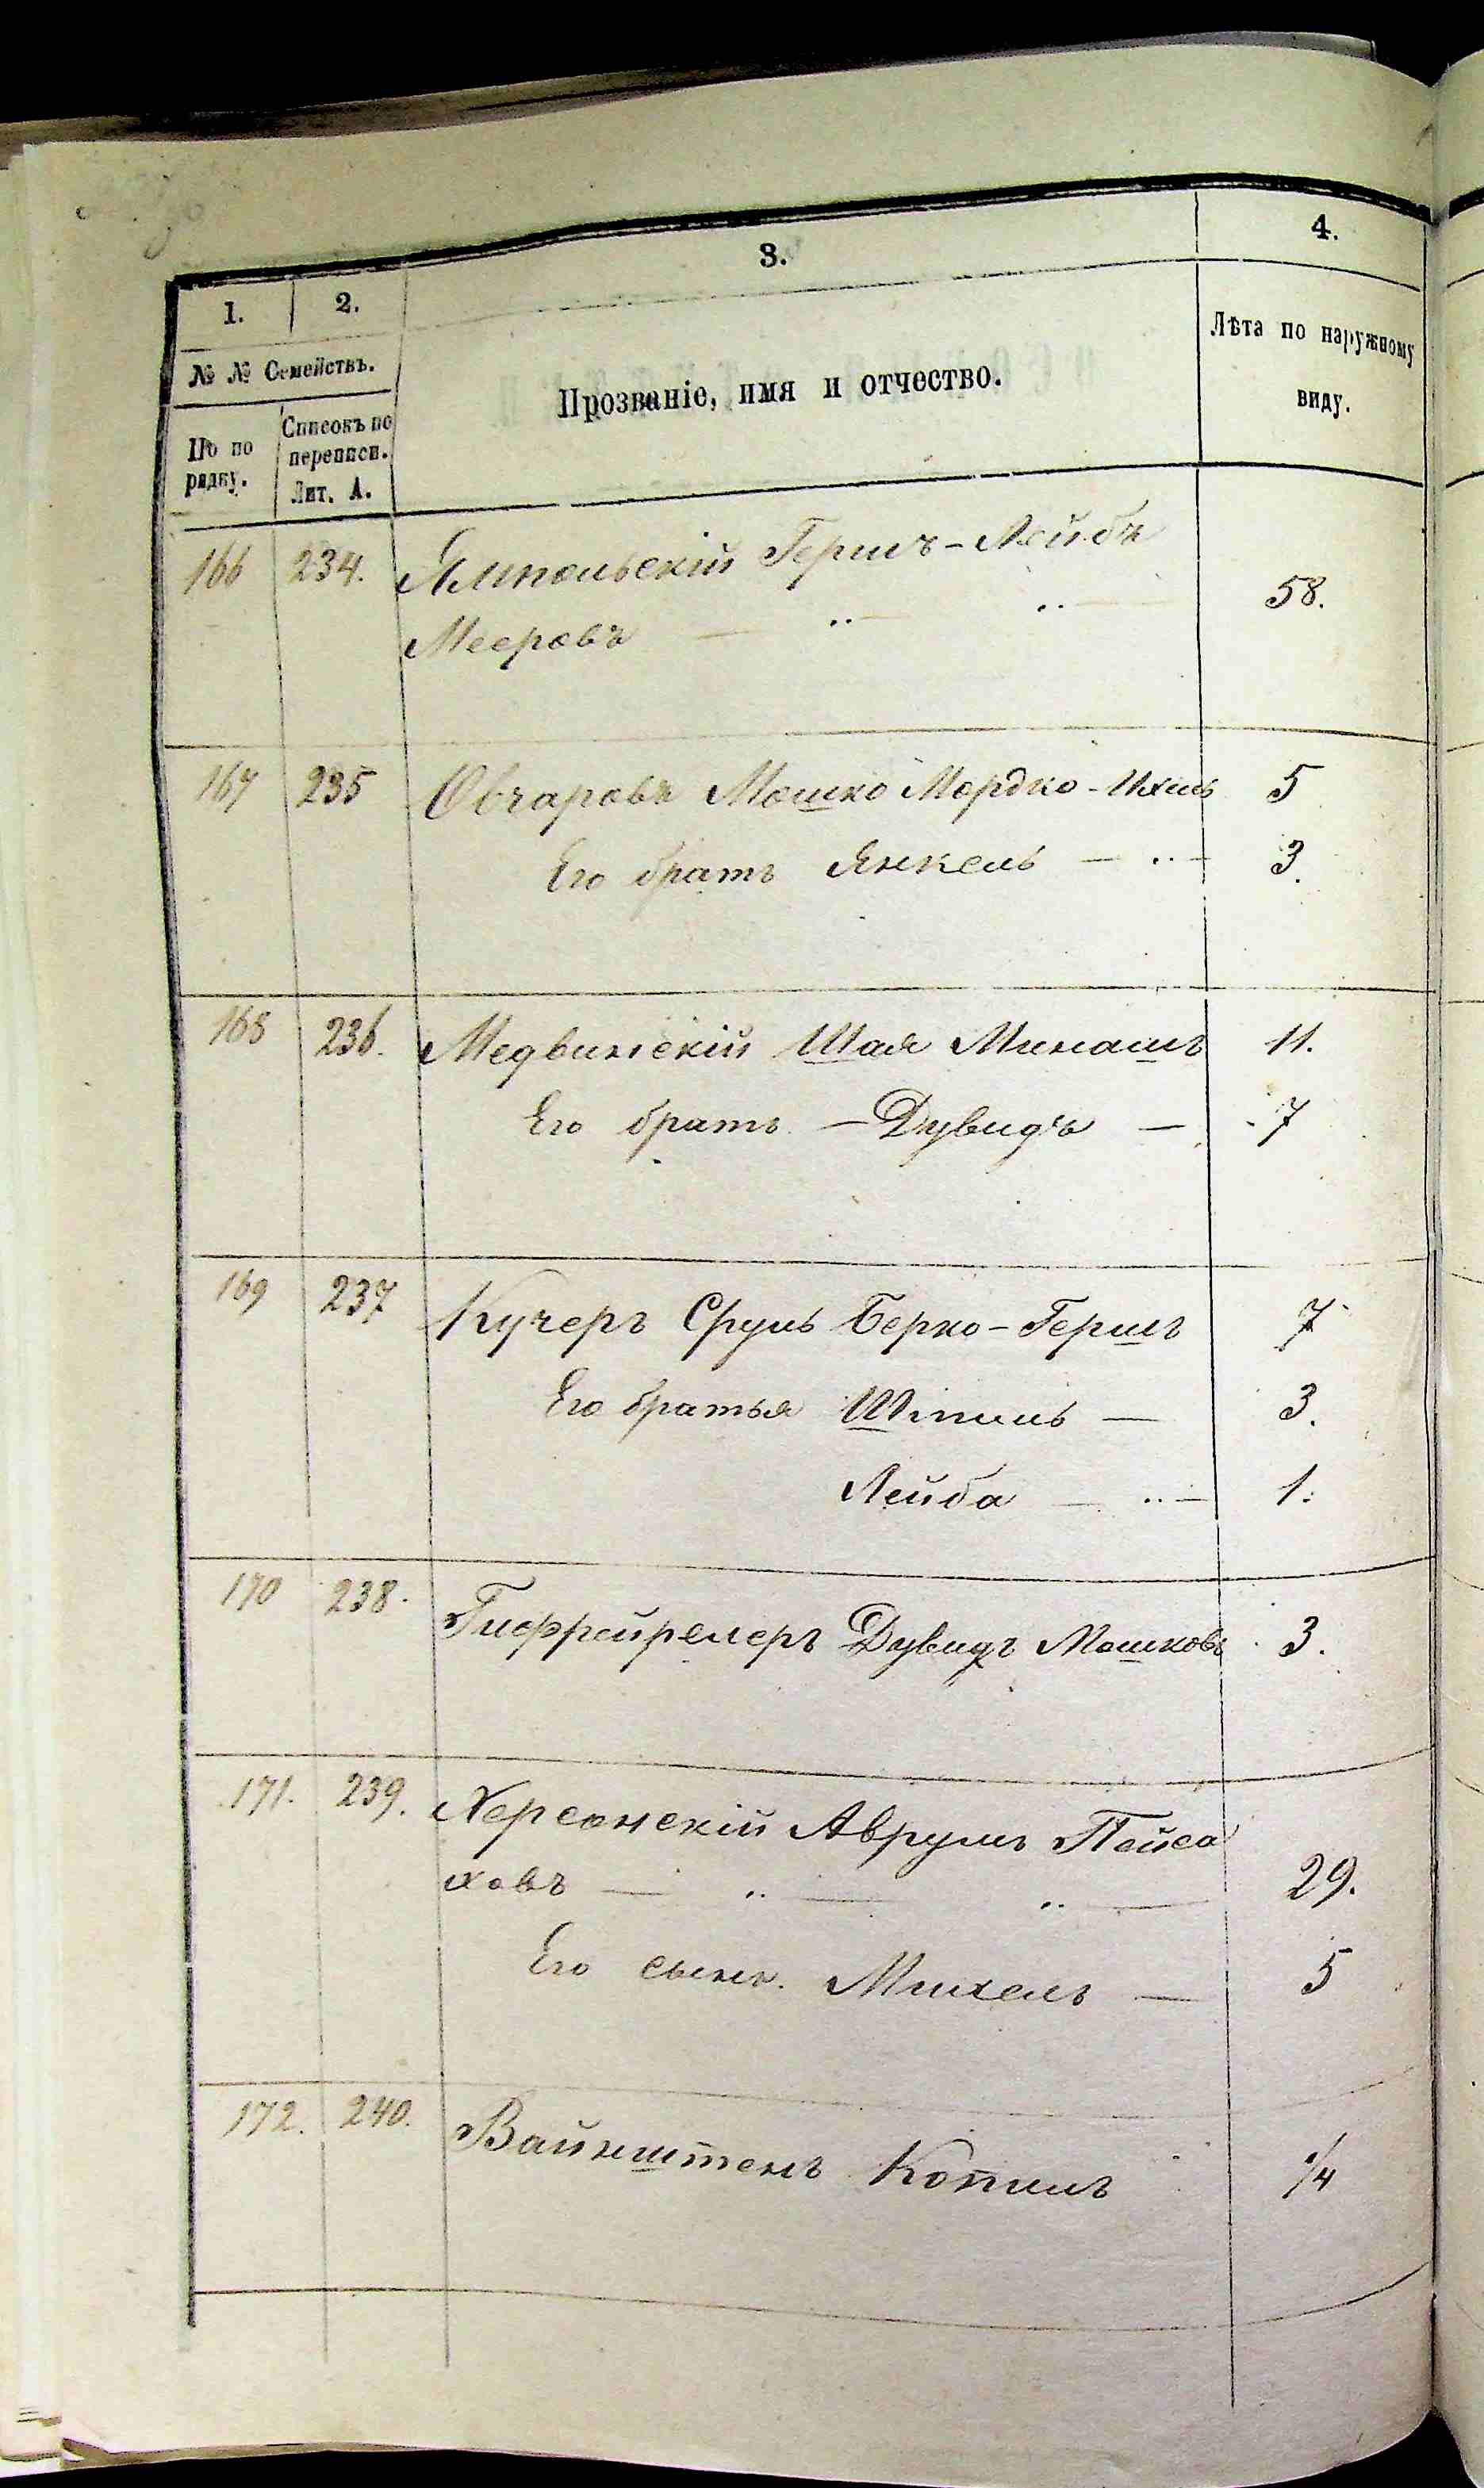 1. 2. 3. 4.
№ № Семействъ.
По по рядку.
Списокъ по переписи. Лит. А.
Прозваніе, имя и отчество.
Лѣта по наружному
виду.
166 234. Ямпольскій Гершъ-Лейбъ
Мееровъ — „ — „ — 58.
167 235 Овчаровъ Мошко Мордко-Ихилъ 5
Его братъ Янкель — „ — 3.
168 236. Медвинскій Шая Минашъ 11.
Его братъ — Дувидъ — 7
169 237 Кучеръ Сруль Берко-Гершъ 7
Его братья Шпиль — 3.
Лейба — „ — 1.
170 238. Дувидъ Мошковъ 3.
171. 239. Херсонскій Аврумъ Пейса
ховъ — „ — „ — 29.
Его сынъ. Михель — 5
172. 240. Вайнштенъ Копилъ 1/4